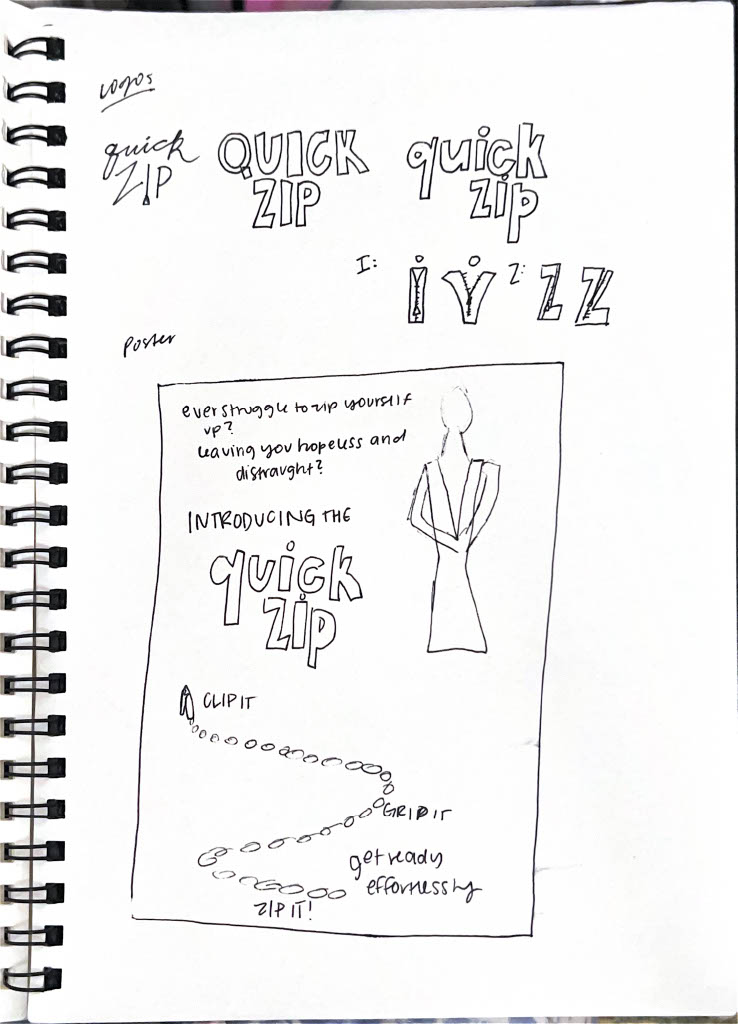 logos
quick
ZIP
QUICK
ZIP
quick
zip
I: i Y Z: Z Z
Poster
ever struggle to zip yourself
up?
leaving you hopeless and
distraught?
INTRODUCING THE
quick
zip
CLIP IT
GRIP IT
get ready
effortlessly
ZIP IT!